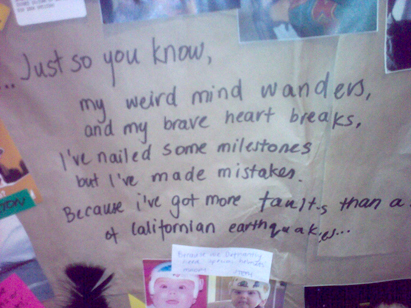 ...Just so you know,
my weird mind wanders,
and my brave heart breaks,
I've nailed some milestones
but I've made mistakes.
Because i've got more faults than a
of Californian earthquakes...